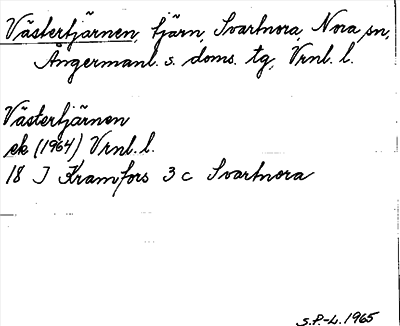 Västertjärnen, tjärn, Svartnora, Nora sn,
Ångermanl. s. doms. tg, Vrnl. l.
Västertjärnen
ek (1964) Vrnl. l.
18 J Kramfors 3 c Svartnora
S.P.-L. 1965